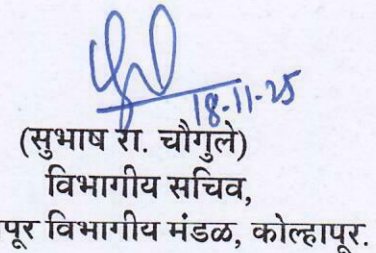 18-11-25
(सुभाष रा. चौगुले)
विभागीय सचिव,
पूर विभागीय मंडळ, कोल्हापूर.